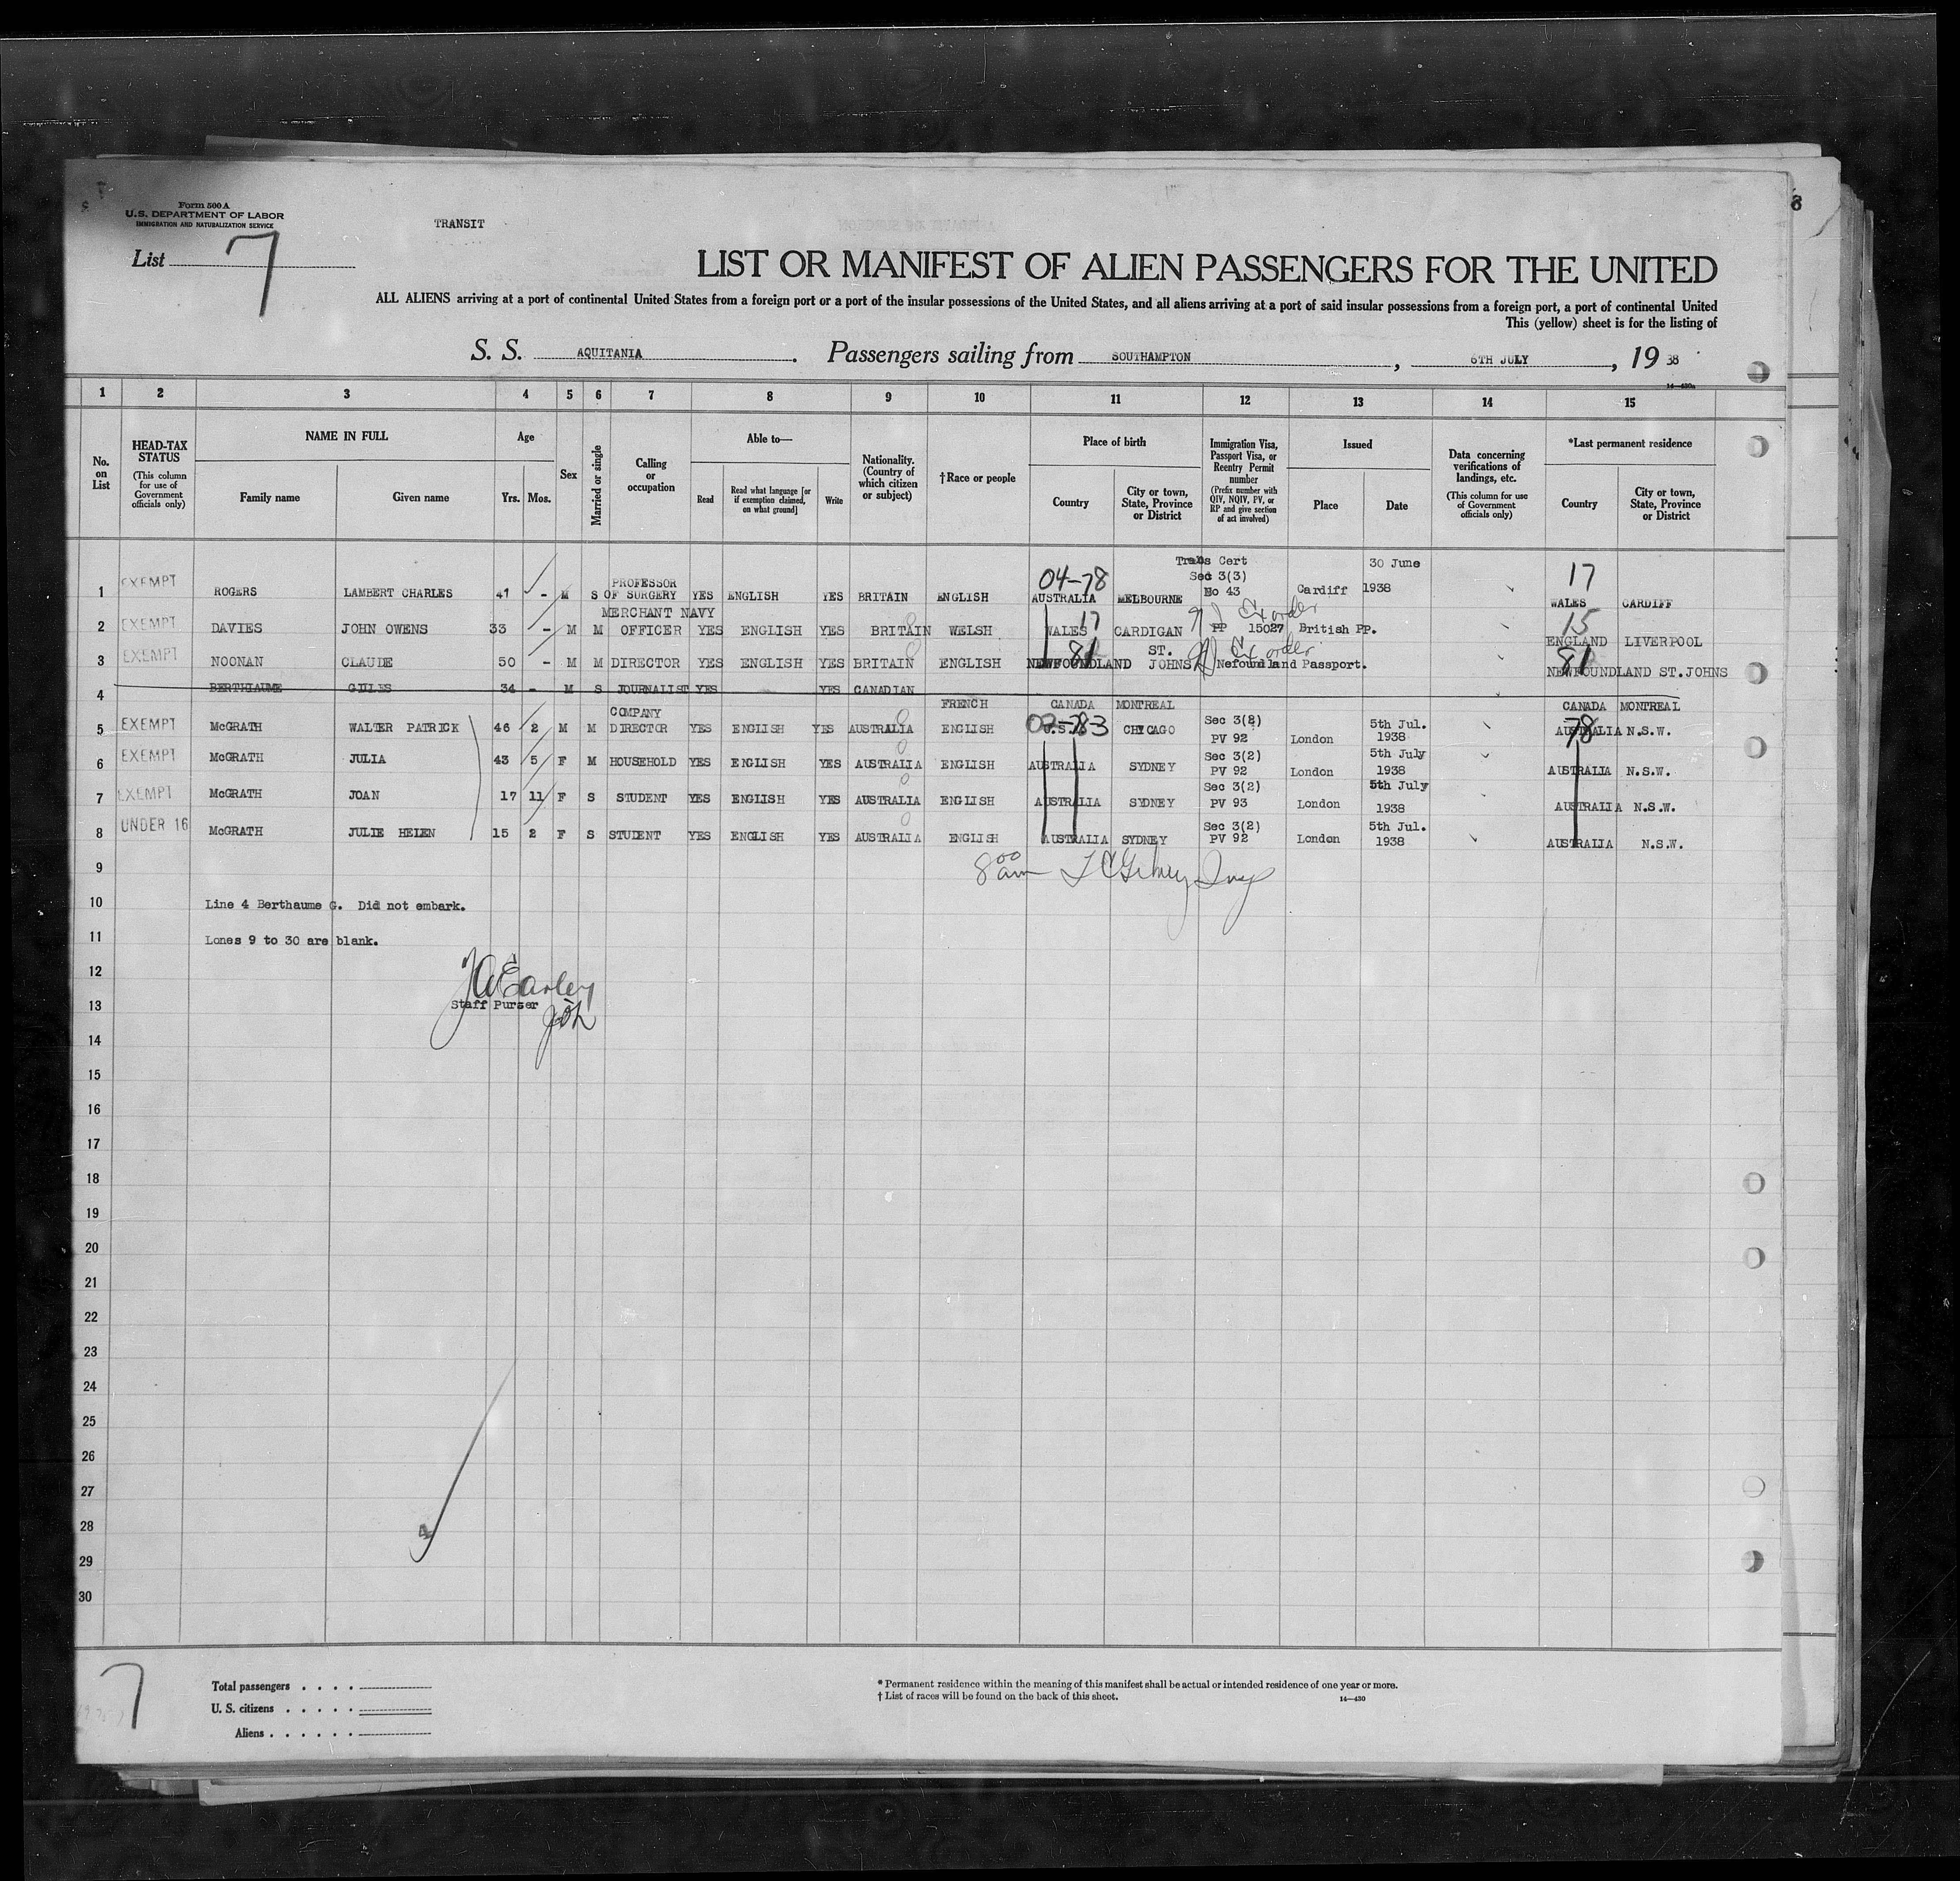 Form 500 A
U.S. DEPARTMENT OF LABOR
IMMIGRATION AND NATURALIZATION SERVICE
TRANSIT
List 7
LIST OR MANIFEST OF ALIEN PASSENGERS FOR THE UNITED
ALL ALIENS arriving at a port of continental United States from a foreign port or a port of the insular possessions of the United States, and all aliens arriving at a port of said insular possessions from a foreign port, a port of continental United
This (yellow) sheet is for the listing of
S. S. AQUITANIA. Passengers sailing from SOUTHAMPTON, 6TH JULY, 19 38
14—430a
1 2 3 4 5 6 7 8 9 10 11 12 13 14 15
No. on List
HEAD-TAX STATUS (This column for use of Government officials only)
NAME IN FULL
Family name Given name
Age
Yrs. Mos.
Sex
Married or single
Calling or occupation
Able to—
Read
Read what language [or if exemption claimed, on what ground]
Write
Nationality. (Country of which citizen or subject)
†Race or people
Place of birth
Country
City or town, State, Province or District
Immigration Visa, Passport Visa, or Reentry Permit number (Prefix number with QIV, NQIV, PV, or RP and give section of act involved)
Issued
Place Date
Data concerning verifications of landings, etc. (This column for use of Government officials only)
*Last permanent residence
Country
City or town, State, Province or District
1 EXEMPT ROGERS LAMBERT CHARLES 41 - M S PROFESSOR OF SURGERY YES ENGLISH YES BRITAIN ENGLISH 04-78 AUSTRALIA MELBOURNE Trans Cert Sec 3(3) No 43 Cardiff 30 June 1938 17 WALES CARDIFF
2 EXEMPT DAVIES JOHN OWENS 33 - M M MERCHANT NAVY OFFICER YES ENGLISH YES BRITAIN WELSH 17 WALES CARDIGAN Ex order PP 15027 British PP. 15 ENGLAND LIVERPOOL
3 EXEMPT NOONAN CLAUDE 50 - M M DIRECTOR YES ENGLISH YES BRITAIN ENGLISH 81 NEWFOUNDLAND ST. JOHNS Ex order Nefoundland Passport. 81 NEWFOUNDLAND ST.JOHNS
4 BERTHIAUME GILLES 34 - M S JOURNALIST YES YES CANADIAN FRENCH CANADA MONTREAL CANADA MONTREAL
5 EXEMPT McGRATH WALTER PATRICK 46 2 M M COMPANY DIRECTOR YES ENGLISH YES AUSTRALIA ENGLISH U.S. CHICAGO Sec 3(2) PV 92 London 5th Jul. 1938 78 AUSTRALIA N.S.W.
6 EXEMPT McGRATH JULIA 43 5 F M HOUSEHOLD YES ENGLISH YES AUSTRALIA ENGLISH AUSTRALIA SYDNEY Sec 3(2) PV 92 London 5th July 1938 AUSTRALIA N.S.W.
7 EXEMPT McGRATH JOAN 17 11 F S STUDENT YES ENGLISH YES AUSTRALIA ENGLISH AUSTRALIA SYDNEY Sec 3(2) PV 93 London 5th July 1938 AUSTRALIA N.S.W.
8 UNDER 16 McGRATH JULIE HELEN 15 2 F S STUDENT YES ENGLISH YES AUSTRALIA ENGLISH AUSTRALIA SYDNEY Sec 3(2) PV 92 London 5th Jul. 1938 AUSTRALIA N.S.W.
9 8 00 am
10 Line 4 Berthaume G. Did not embark.
11 Lones 9 to 30 are blank.
12 JAEarley
13 Staff Purser
14
15
16
17
18
19
20
21
22
23
24
25
26
27
28
29
30
7
Total passengers . . . .
U. S. citizens . . . . .
Aliens . . . . . .
* Permanent residence within the meaning of this manifest shall be actual or intended residence of one year or more.
† List of races will be found on the back of this sheet.
14—430